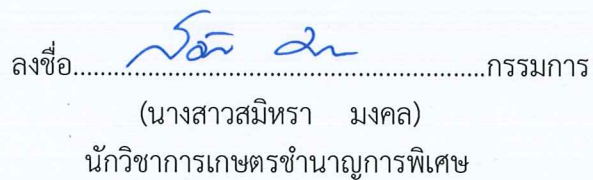 ลงชื่อ........................................................กรรมการ
(นางสาวสมิหรา มงคล)
นักวิชาการเกษตรชำนาญการพิเศษ